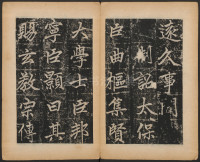 遂以事聞
制詔太保
臣曲樞集賢
大學士臣邦
寧臣顥曰其
賜玄教宗傳